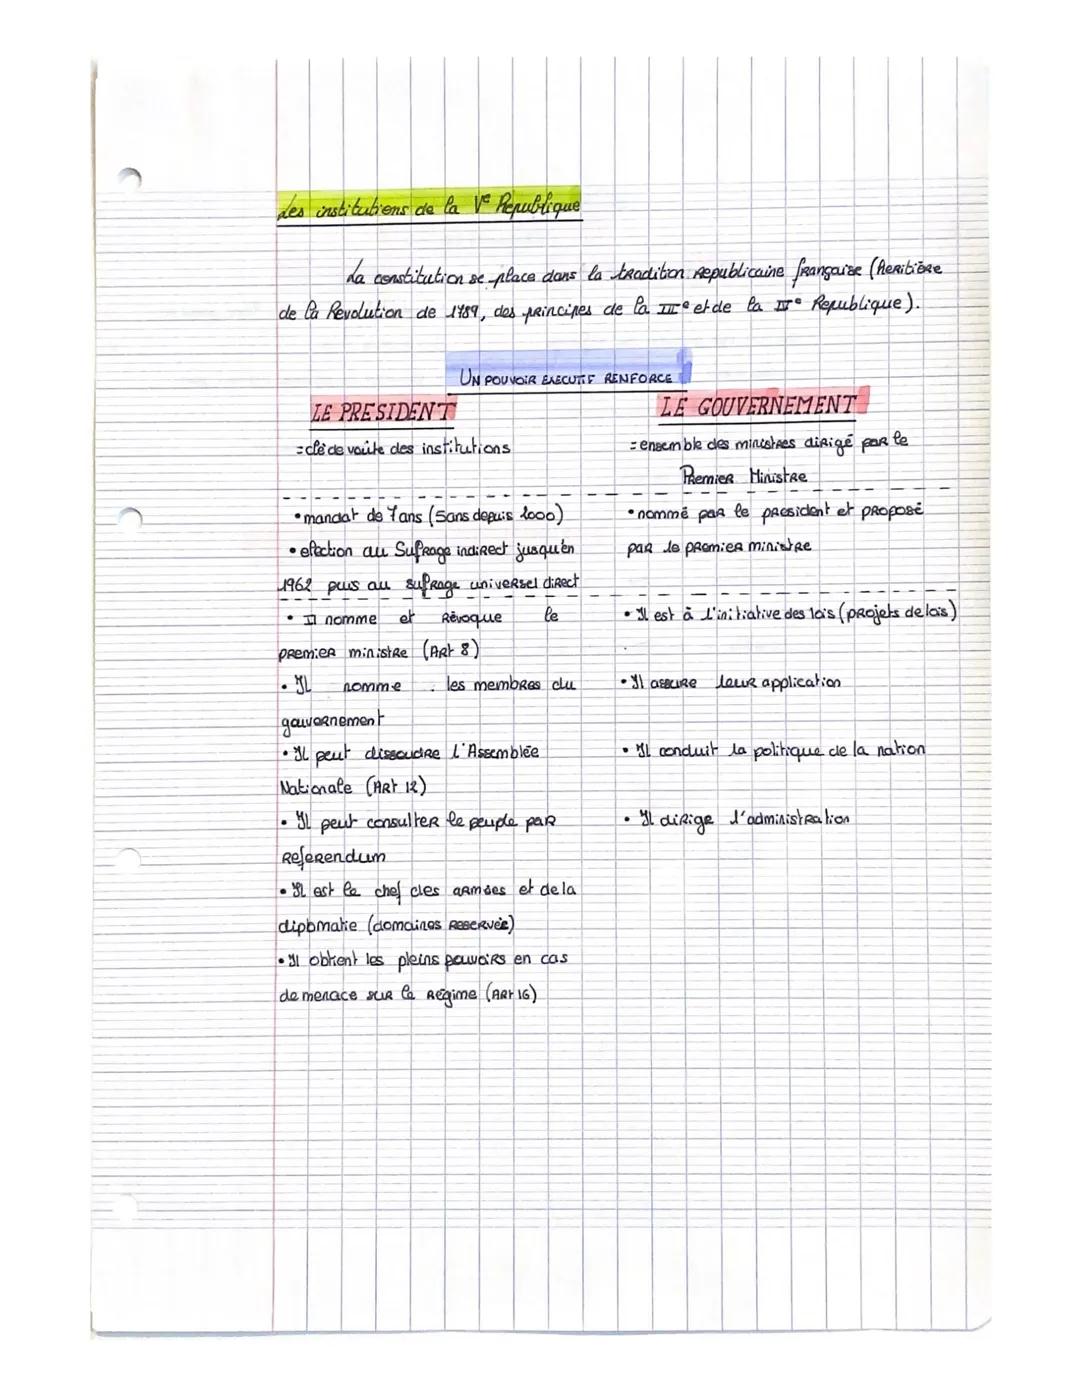 Les institutions de la Ve Republique
La constitution se place dans la tradition republicaine française (heritière
de la Revolution de 1789, des principes de la IIIe et de la IVe Republique).
UN POUVOIR EXECUTIF RENFORCE
LE PRESIDENT
= clé de voûte des institutions
• mandat de 7 ans (5ans depuis 2000)
• election au Sufrage indirect jusqu'en
1962 puis au sufrage universel direct
• Il nomme et Révoque le
premier ministre (Art 8)
• Il nomme les membres du
gouvernement
• Il peut dissoudre l'Assemblée
Nationale (Art 12)
• Il peut consulter le peuple par
Referendum
• Il est le chef des armées et de la
diplomatie (domaines reservés)
• Il obtient les pleins pouvoirs en cas
de menace sur le régime (Art 16)
LE GOUVERNEMENT
= ensemble des ministres dirigé par le
Premier Ministre
• nommé par le président et proposé
par le premier ministre
• Il est à l'initiative des lois (projets de lois)
• Il assure leur application
• Il conduit la politique de la nation
• Il dirige l'administration